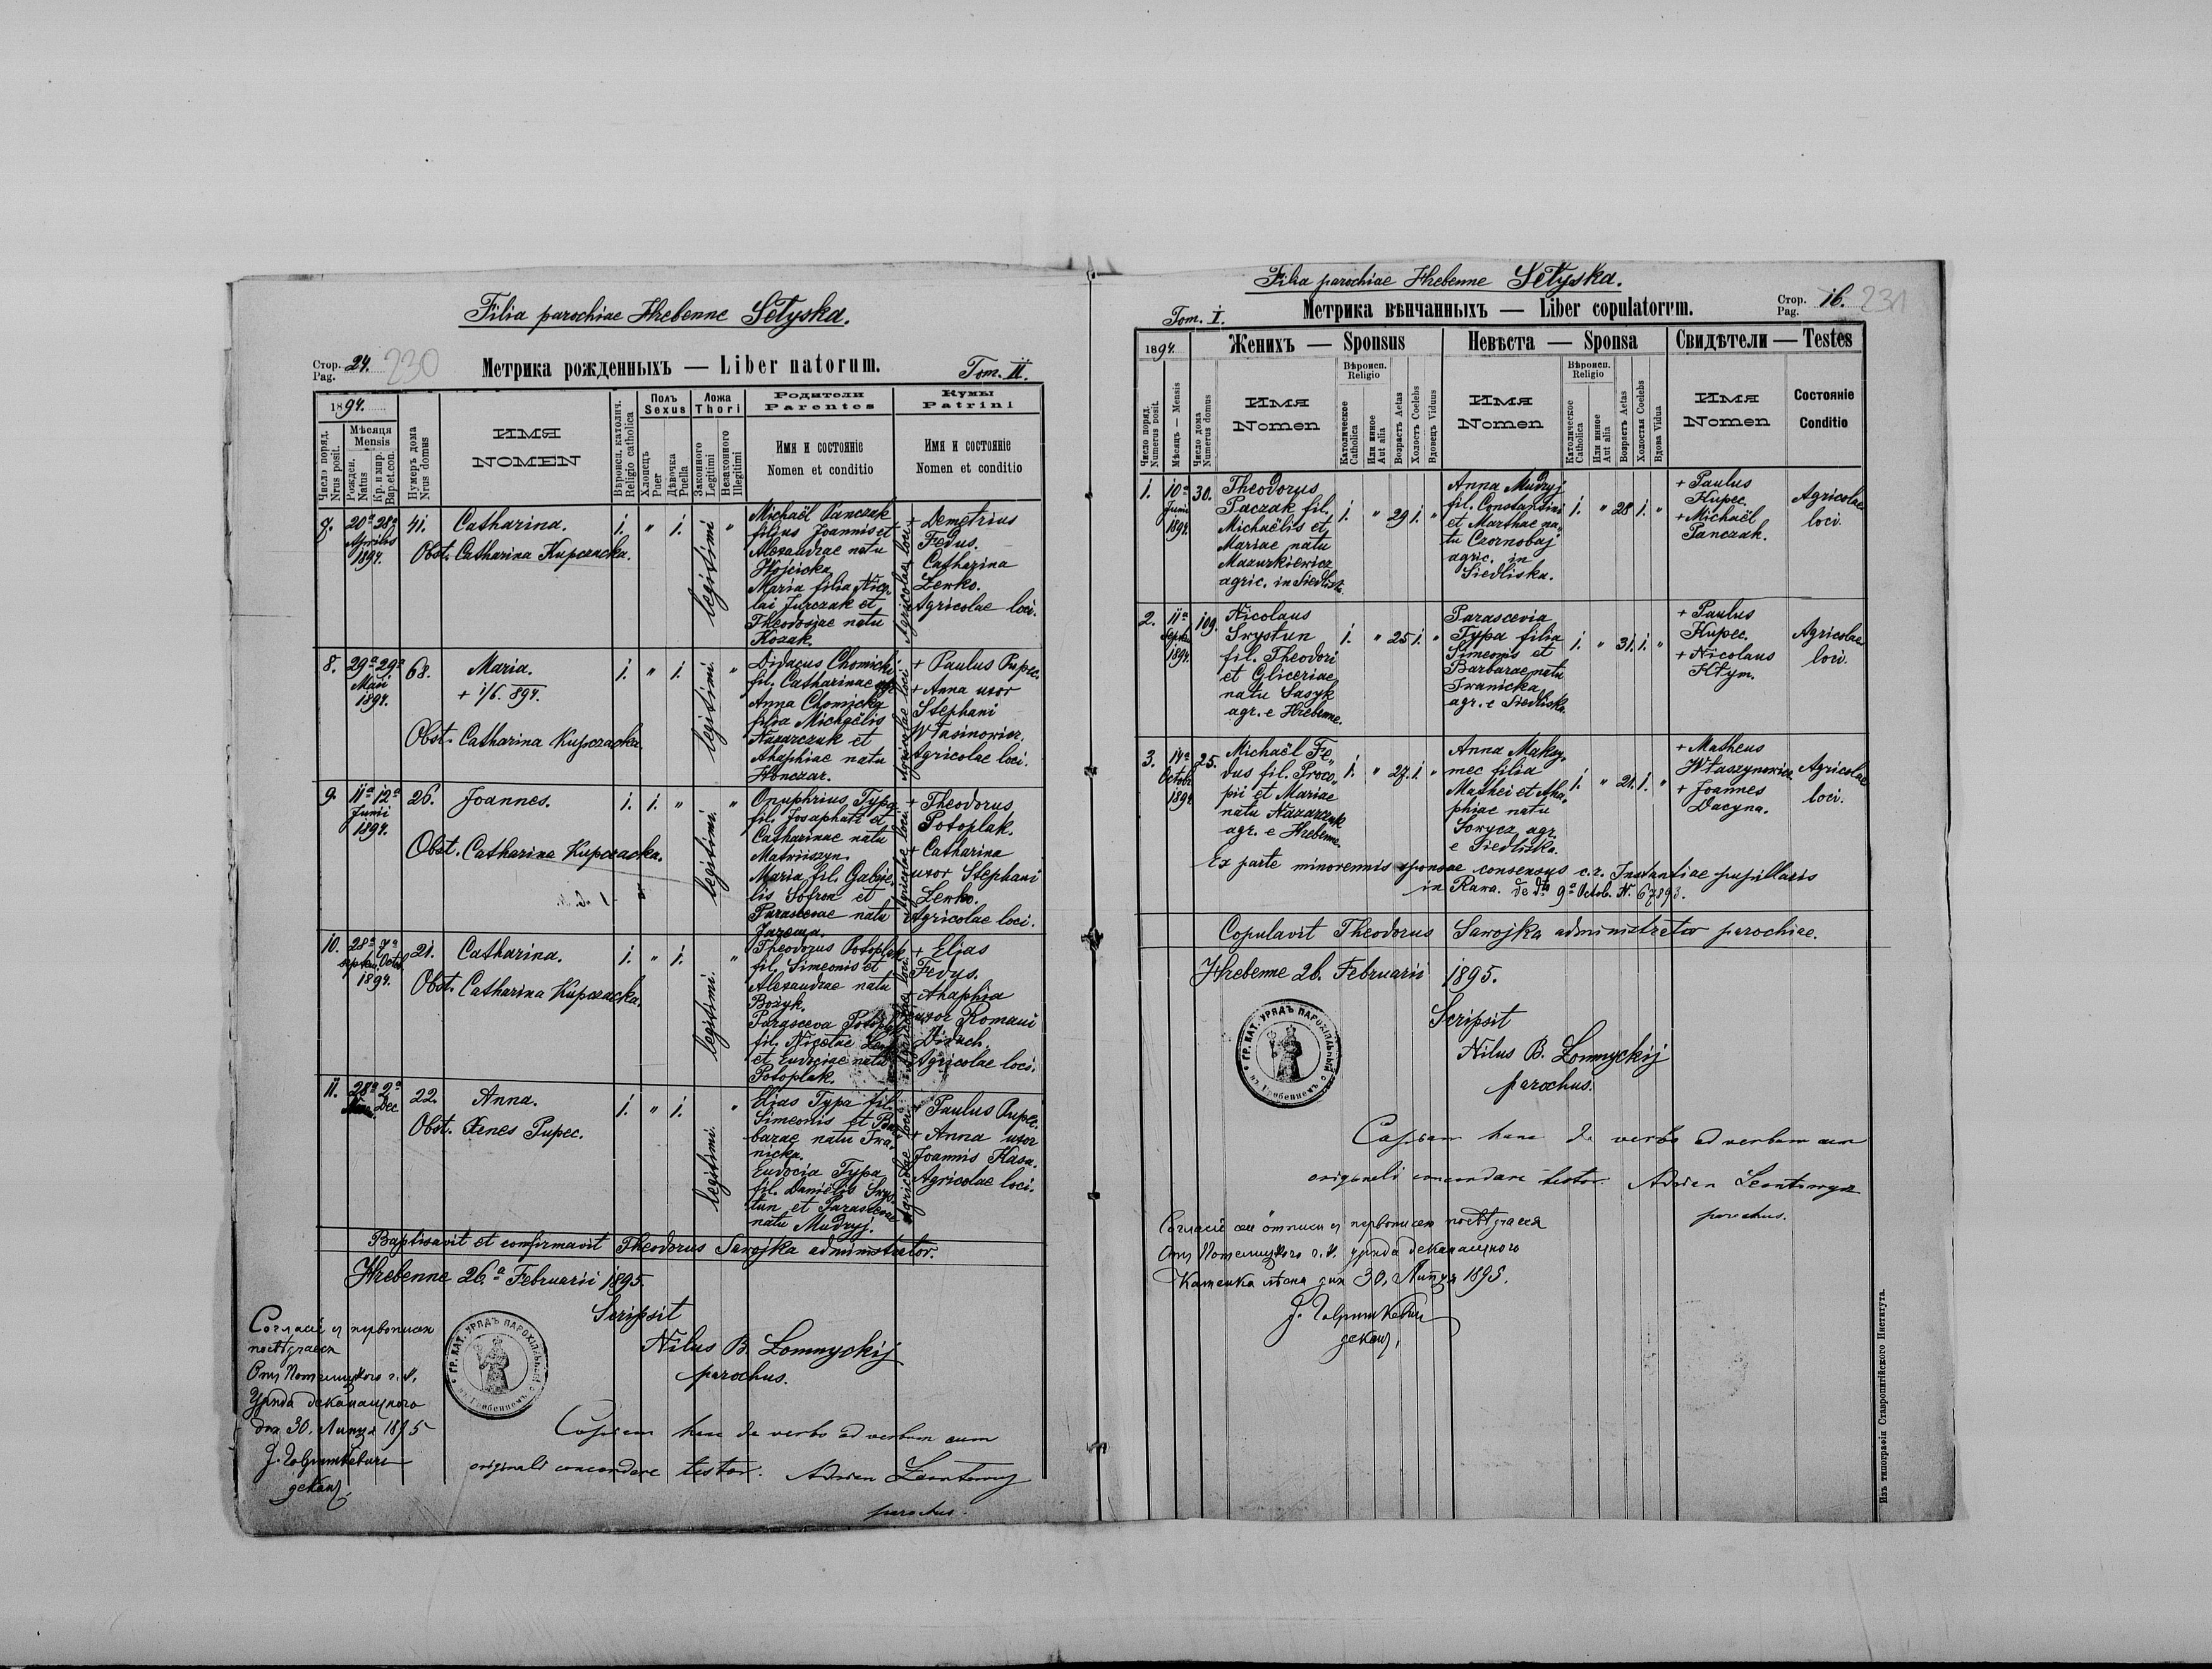 Filia parochiae Hrebenne Sełyska.
Стор. Pag. 24. 230
Метрика рожденныхъ — Liber natorum.
Tom. II.
1894.
Число поряд. Nrus posit.
Мѣсяця Mensis
Рожден. Natus
Кр. и мир. Bap. et con.
Нумеръ дома Nrus domus
ИМЯ NOMEN
Вѣроисп. католич. Religio catholica
Полъ Sexus
Хлопецъ Puer
Дѣвочка Puella
Ложа Thori
Законного Legitimi
Незаконного Illegitimi
Родители Parentes
Имя и состояніе
Nomen et conditio
Кумы Patrini
Имя и состояніе
Nomen et conditio
7. 20a 28a Aprilis 1894. 41. Catharina. 1. " 1. legitimi "
Obst. Catharina Kupczacka.
Michaël Panczak
filius Joannis et
Alexandrae natu
Wojcicka
Maria filia Nico-
lai Jurczak et
Theodosiae natu
Kozak.
Agricolae loci.
+ Demetrius
Fedus.
Catharina
Lewko.
Agricolae loci.
8. 29a 29a Maii 1894. 68. Maria. 1. " 1. legitimi. "
+ 1/6. 894.
Obst. Catharina Kupczacka.
Didacus Chomicki
fil. Catharinae
Anna Chomicka
filia Michaëlis
Nazarczuk et
Ahaphiae natu
Honczar.
Agricolae loci.
+ Paulus Pupec.
+ Anna uxor
Stephani
Własinowicz.
Agricolae loci.
9. 11a 12a Junii 1894. 26. Joannes. 1. 1. " legitimi. "
Obst. Catharina Kupczacka.
Onuphrius Typa
fil. Josaphati et
Catharinae natu
Matwiiszyn.
Maria fil. Gabrie-
lis Sofron et
Parascevae natu
Jarema.
Agricolae loci.
+ Theodorus
Potoplak.
+ Catharina
uxor Stephani
Lewko.
Agricolae loci.
10. 28a Septem. 7a Octob. 1894. 21. Catharina. 1. " 1. legitimi. "
Obst. Catharina Kupczacka.
Theodorus Potoplak
fil. Simeonis et
Alexandrae natu
Bożyk.
Parasceva
fil. Nicolae
et Eudociae natu
Potoplak.
Agricolae loci.
+ Elias
Fedys.
+ Ahaphia
uxor Romani
Diduch.
Agricolae loci.
11. 28a 2a Dec. 22. Anna. 1. " 1. legitimi. "
Obst. Xenes Pupec.
Elias Typa fil.
Simeonis et Bar-
barae natu Iwa-
nicka.
Eudocia Typa
fil. Danielis Swys-
tun et Parascevae
natu Mudryj.
Agricolae loci.
+ Paulus Pupec.
+ Anna uxor
Joannis Kasa.
Agricolae loci.
Baptisavit et confirmavit Theodorus Sawojka administrator.
Hrebenne 26.a Februarii 1895.
Scripsit
Nilus B. Łomnyckij
parochus.
ГР. КАТ. УРЯДЪ ПАРОХІЯЛЬНЫЙ
въ Гребенномъ
Согласіе съ первописомъ
посвѣдчается
Отъ Потелицкого г. к.
Уряда деканального
дня 30. Липця 1895
декан.
Copiam hanc de verbo ad verbum cum
originali concordare testor. Adrian
parochus.
Filia parochiae Hrebenne Sełyska.
Tom. I.
Метрика вѣнчанныхъ — Liber copulatorum.
Стор. Pag. 16. 231
1894.
Женихъ — Sponsus
Невѣста — Sponsa
Свидѣтели — Testes
Число поряд. Numerus posit.
Мѣсяцъ — Mensis
Число дома Numerus domus
Имя Nomen
Вѣроисп. Religio
Католическое Catholica
Или инное Aut alia
Возрастъ Aetas
Холостъ Coelebs
Вдовецъ Viduus
Имя Nomen
Вѣроисп. Religio
Католическое Catholica
Или инное Aut alia
Возрастъ Aetas
Холостая Coelebs
Вдова Vidua
Имя Nomen
Состояніе Conditio
1. 10a Junii 1894. 30.
Theodorus
Paczak fil.
Michaëlis et
Mariae natu
Mazurkiewicz
agric. in Siedlisk.
1. " 29 1. "
Anna Mudryj
fil. Constantini
et Marthae na-
tu Czornobaj
agric. in
Siedliska.
1. " 28 1. "
+ Paulus
Kupec.
+ Michaël
Panczak.
Agricolae
loci.
2. 11a Septe. 1894. 109.
Nicolaus
Swystun
fil. Theodori
et Gliceriae
natu Sasyk
agr. e Hrebenne.
1. " 25 1. "
Parascevia
Typa filia
Simeonis et
Barbarae natu
Iwanicka
agr. e Siedliska.
1. " 31. 1. "
+ Paulus
Kupec.
+ Nicolaus
Kłym.
Agricolae
loci.
3. 14a Octob. 1894. 25.
Michaël Fe-
dus fil. Proco-
pii et Mariae
natu Nazarczuk
agr. e Hrebenne.
1. " 27. 1. "
Anna Maksy-
mec filia
Mathei et Aha-
phiae natu
Sowycz agr.
e Siedliska.
1. " 21. 1. "
+ Matheus
Właszynowicz
+ Joannes
Dacyna.
Agricolae
loci.
Ex parte minorennis sponsae consensus c.r. Instantiae pupillaris
in Rawa. de dto 9a Octob. N. 67893.
Copulavit Theodorus Sawojka administrator parochiae.
Hrebenne 26. Februarii 1895.
Scripsit
Nilus B. Łomnyckij
parochus.
ГР. КАТ. УРЯДЪ ПАРОХІЯЛЬНЫЙ
въ Гребенномъ
Copiam hanc de verbo ad verbum cum
originali concordare testor. Adrian
parochus.
Согласіе съ первописомъ посвѣдчается
Отъ Потелицкого г. к. уряда деканального
дня 30. Липця 1895.
декан.
Изъ типографіи Ставропигійского Института.